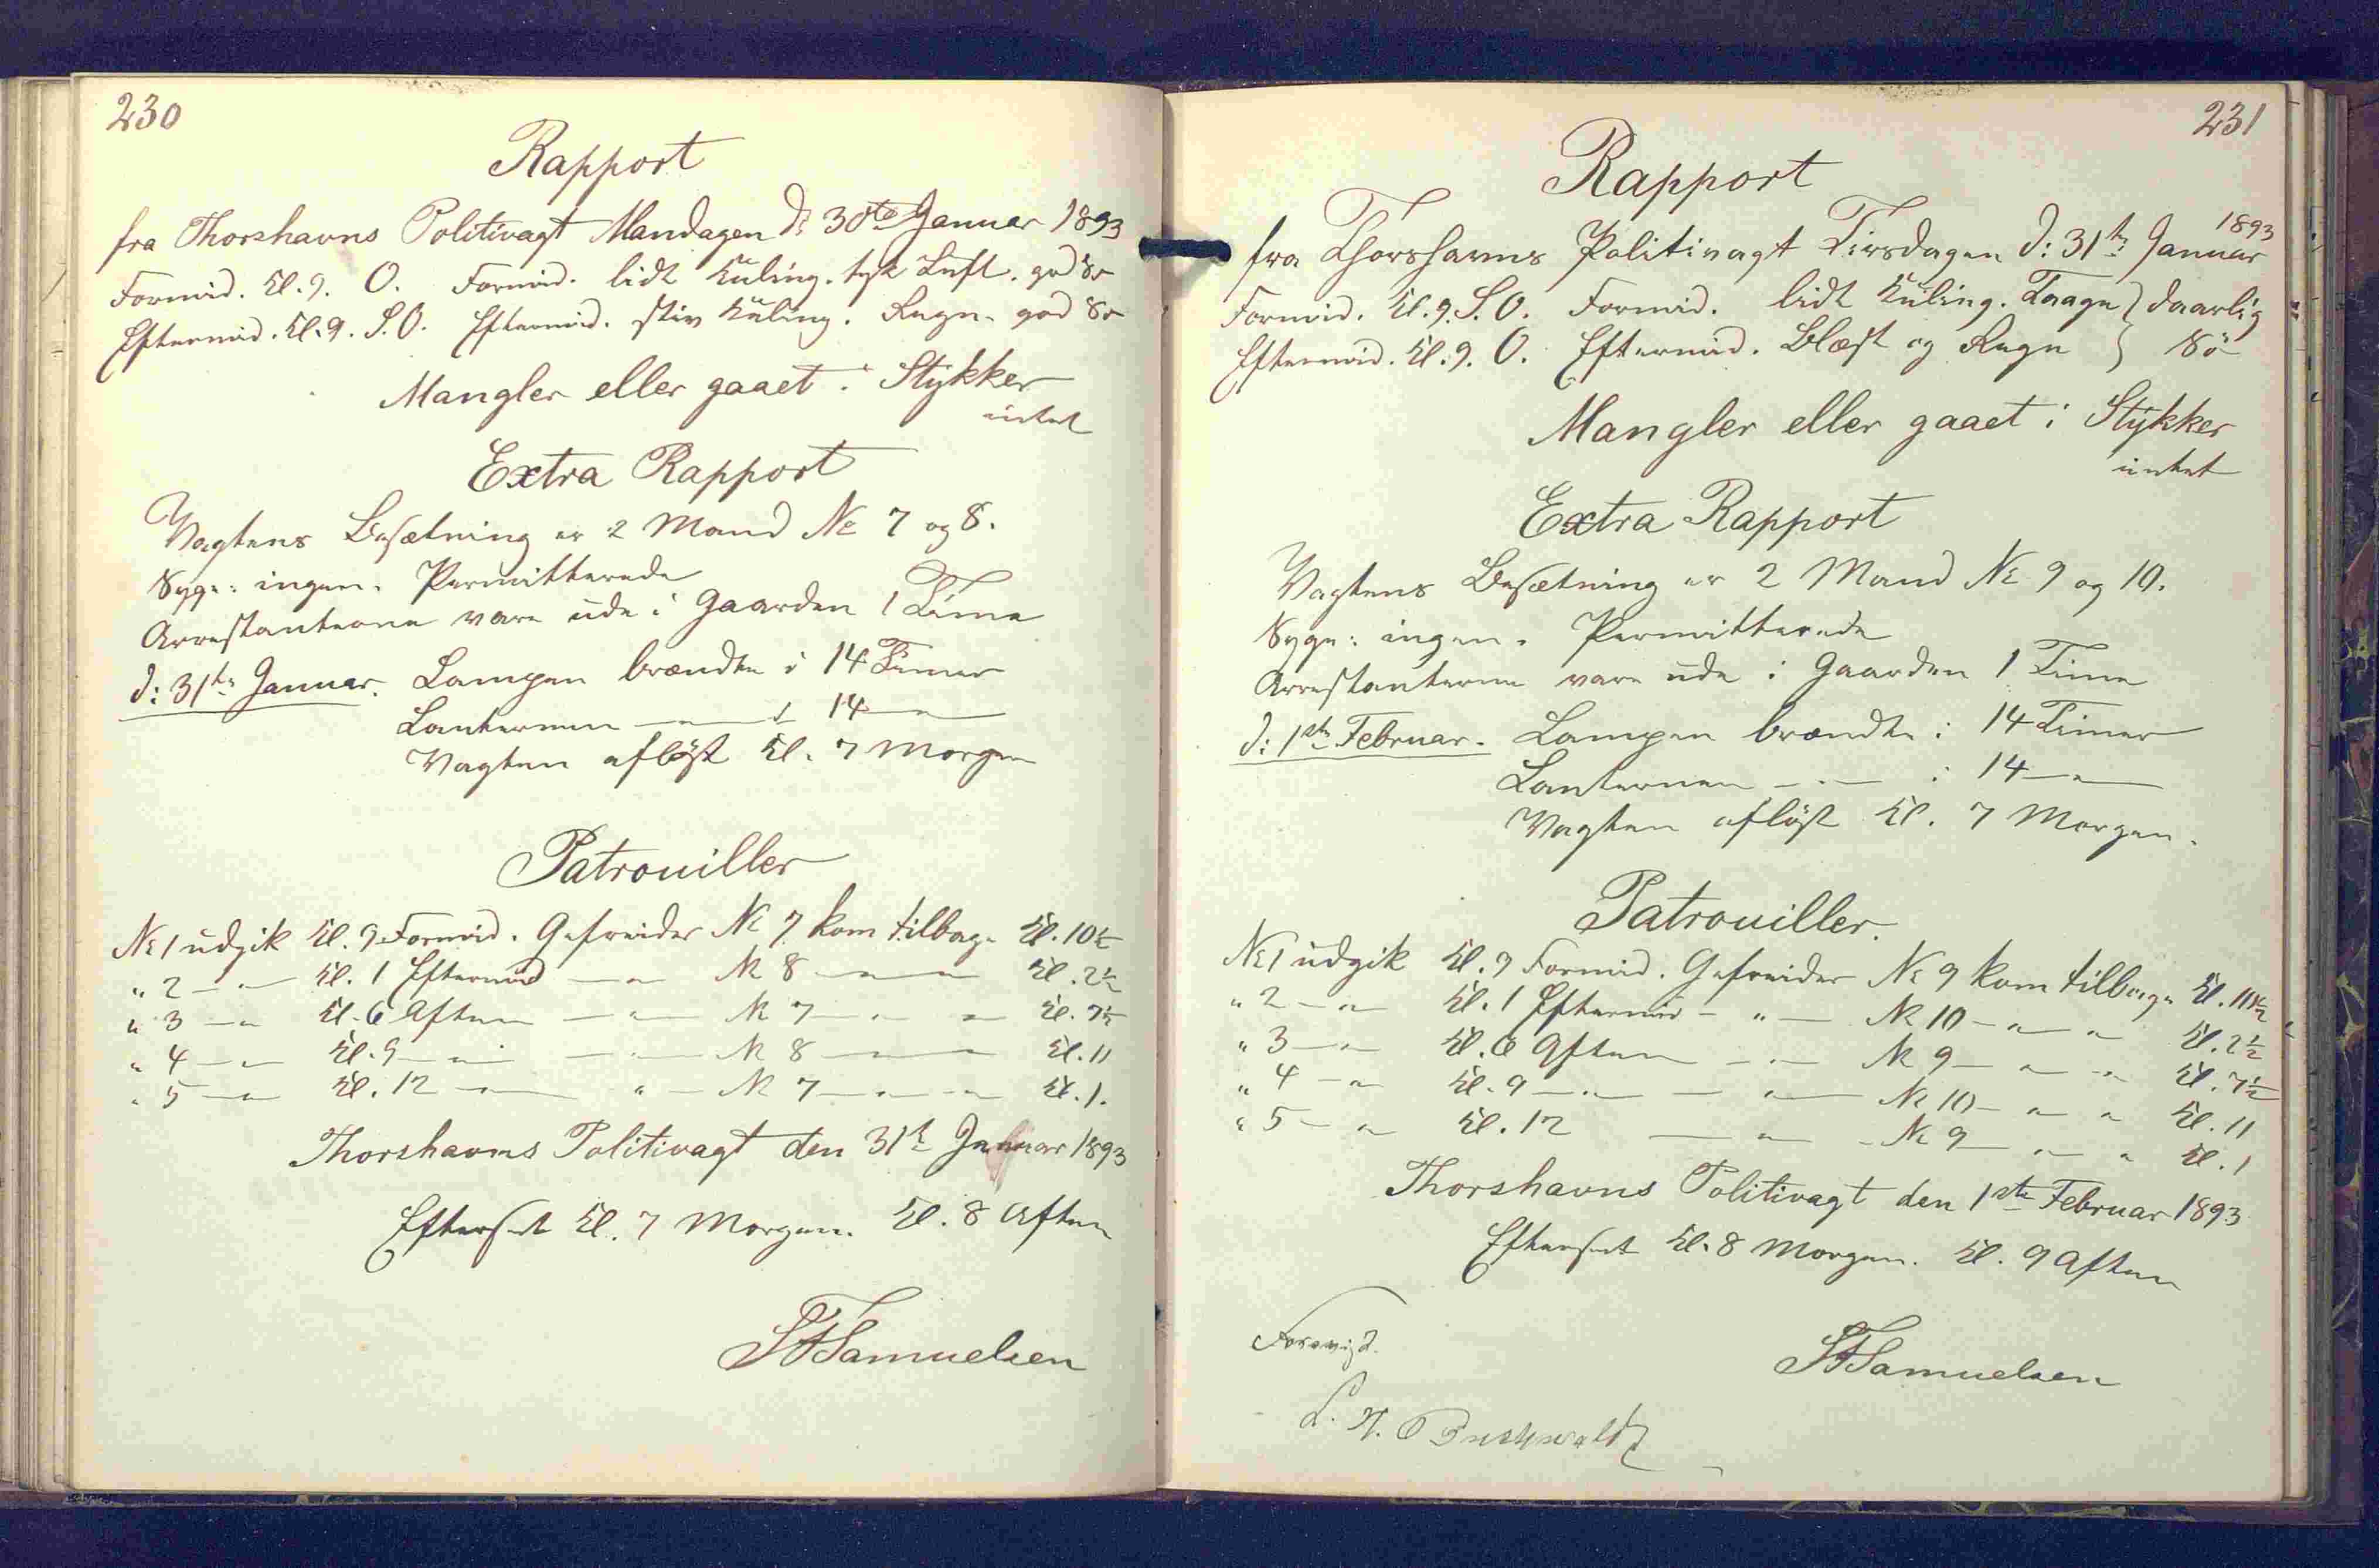 230
Rapport
fra Thorshavns Politivagt Mandagen d: 30te Januar 1893
Formid. Kl. 9. O. Formid. lidt Kuling. tyk Luft. god Sø
Eftermid. Kl. 9. S.O. Eftermid. stiv Kuling. Regn. god Sø
Mangler eller gaaet i Stykker
intet
Extra Rapport
Vagtens Besætning er 2 Mand No 7 og 8.
Syge: ingen. Permitterede
Arrestanterne vare ude i Gaarden 1 Time
d: 31te Januar. Lampen brændte i 14 Timer
Lanternen — " — i 14 — " —
Vagten afløst Kl. 7 Morgen
Patrouiller
No 1 udgik Kl. 9 Formid. Gefreider No 7 kom tilbage Kl. 10½
" 2 — " — Kl. 1 Eftermid — " — No 8 — " — " — Kl. 2½
" 3 — " — Kl. 6 Aften — " — No 7 — " — " — Kl. 7½
" 4 — " — Kl. 9 — " — — " — No 8 — " — " — Kl. 11
" 5 — " — Kl. 12 — " — " — No 7 — " — " — Kl. 1.
Thorshavns Politivagt den 31te Januar 1893
Efterset Kl. 7 Morgen. Kl. 8 Aften
Samuelsen
231
Rapport
fra Thorshavns Politivagt Tirsdagen d: 31te Januar 1893
Formid. Kl. 9. S.O. Formid. lidt Kuling. Taage } daarlig
Eftermid. Kl. 9. O. Eftermid. Blæst og Regn } Sø
Mangler eller gaaet i Stykker
intet
Extra Rapport
Vagtens Besætning er 2 Mand No 9 og 10.
Syge: ingen. Permitterede
Arrestanterne vare ude i Gaarden 1 Time
d: 1ste Februar. Lampen brændte i 14 Timer
Lanternen — " — i 14 — " —
Vagten afløst Kl. 7 Morgen.
Patrouiller.
No 1 udgik Kl. 9 Formid. Gefreider No 9 kom tilbage Kl. 11½
" 2 — " — Kl. 1 Eftermid — " — No 10 — " — " — Kl. 2½
" 3 — " — Kl. 6 Aften — " — No 9 — " — " — Kl. 7½
" 4 — " — Kl. 9 — " — — " — No 10 — " — " — Kl. 11
" 5 — " — Kl. 12 — " — No 9 — " — " — Kl. 1
Thorshavns Politivagt den 1ste Februar 1893
Efterset Kl. 8 Morgen. Kl. 9 Aften
Forevist.
Samuelsen